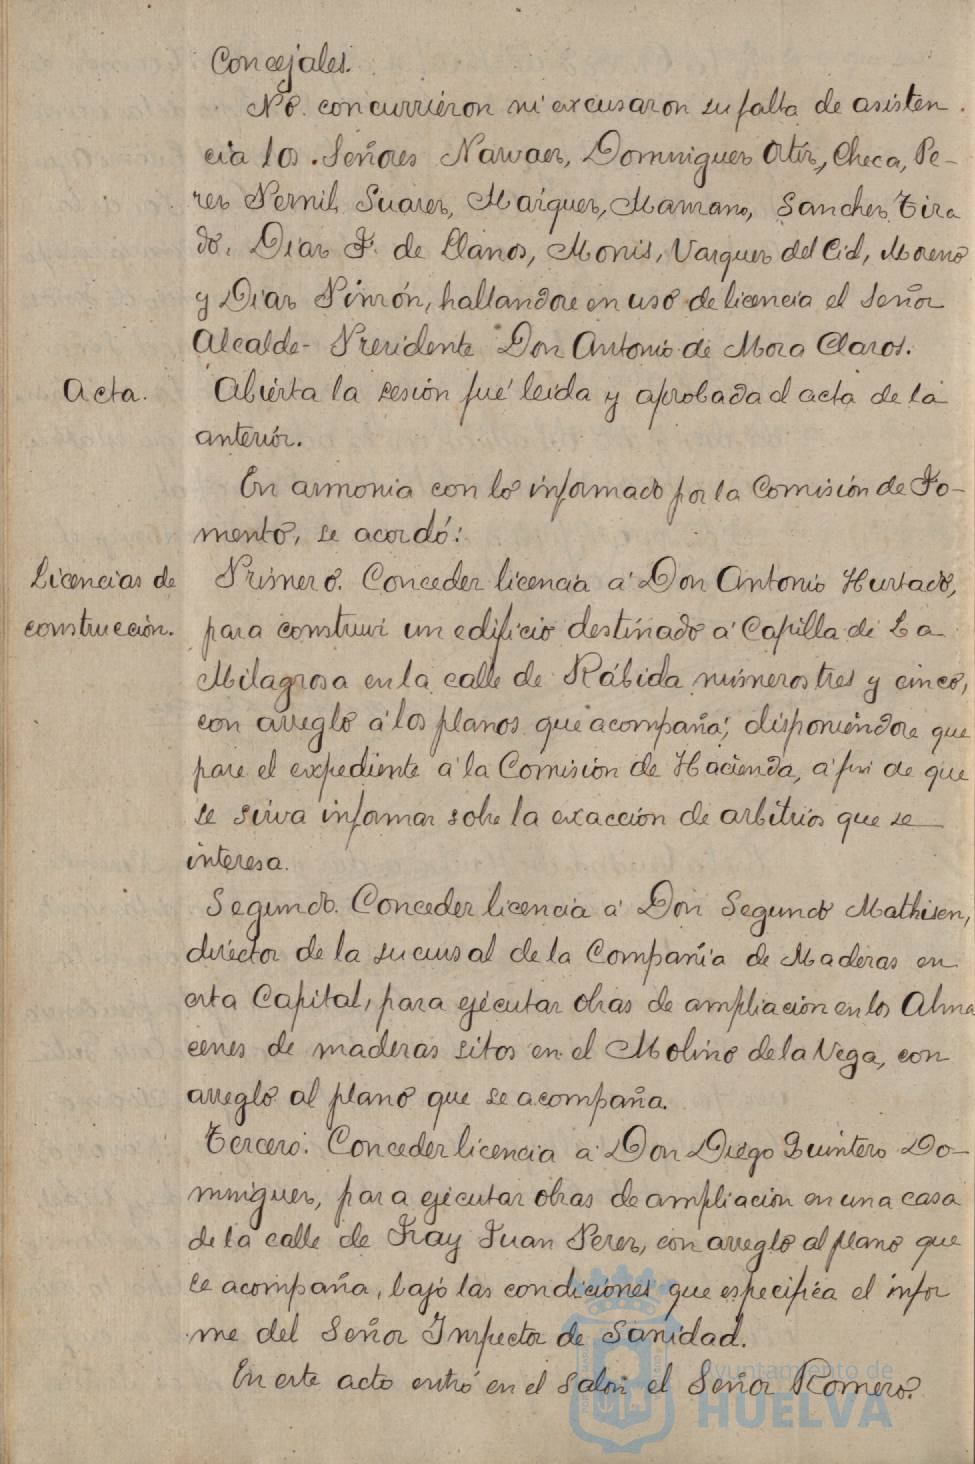 Concejales.
No concurrieron ni excusaron su falta de asisten
cia los Señores Narvaez, Dominguez Ortiz, Checa, Pe-
rez Pernil, Suarez, Márquez, Manzano, Sanchez Tira
do, Diaz F. de Llanos, Monis, Vazquez del Cid, Moreno
y Diaz Pinzón, hallandose en uso de licencia el Señor
Alcalde-Presidente Don Antonio de Mora Claros.
Acta.
Abierta la sesión fué leida y aprobada el acta de la
anterior.
En armonia con lo informado por la Comisión de Fo-
mento, se acordó:
Licencias de
construcción.
Primero. Conceder licencia á Don Antonio Hurtado,
para construir un edificio destinado á Capilla de La
Milagrosa en la calle de Rábida números tres y cinco,
con arreglo á los planos que acompaña; disponiéndose que
pase el expediente á la Comisión de Hacienda, á fin de que
se sirva informar sobre la exacción de arbitrios que se
interesa.
Segundo. Conceder licencia á Don Segundo Mathisen,
director de la sucursal de la Compañia de Maderas en
esta Capital, para ejecutar obras de ampliación en los Alma
cenes de maderas sitos en el Molino de la Vega, con
arreglo al plano que se acompaña.
Tercero. Conceder licencia á Don Diego Quintero Do-
minguez, para ejecutar obras de ampliación en una casa
de la calle de Fray Juan Perez, con arreglo al plano que
se acompaña, bajo las condiciones que especifica el infor
me del Señor Inspector de Sanidad.
En este acto entró en el Salon el Señor Romero.
Ayuntamiento de
HUELVA